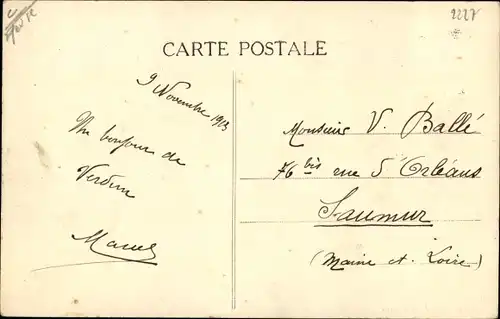 2227
CARTE POSTALE
9 Novembre 1913
Un bonjour de
Verdun
Marcel
Monsieur V. Ballé
76 bis rue d'Orléans
Saumur
(Maine et Loire)